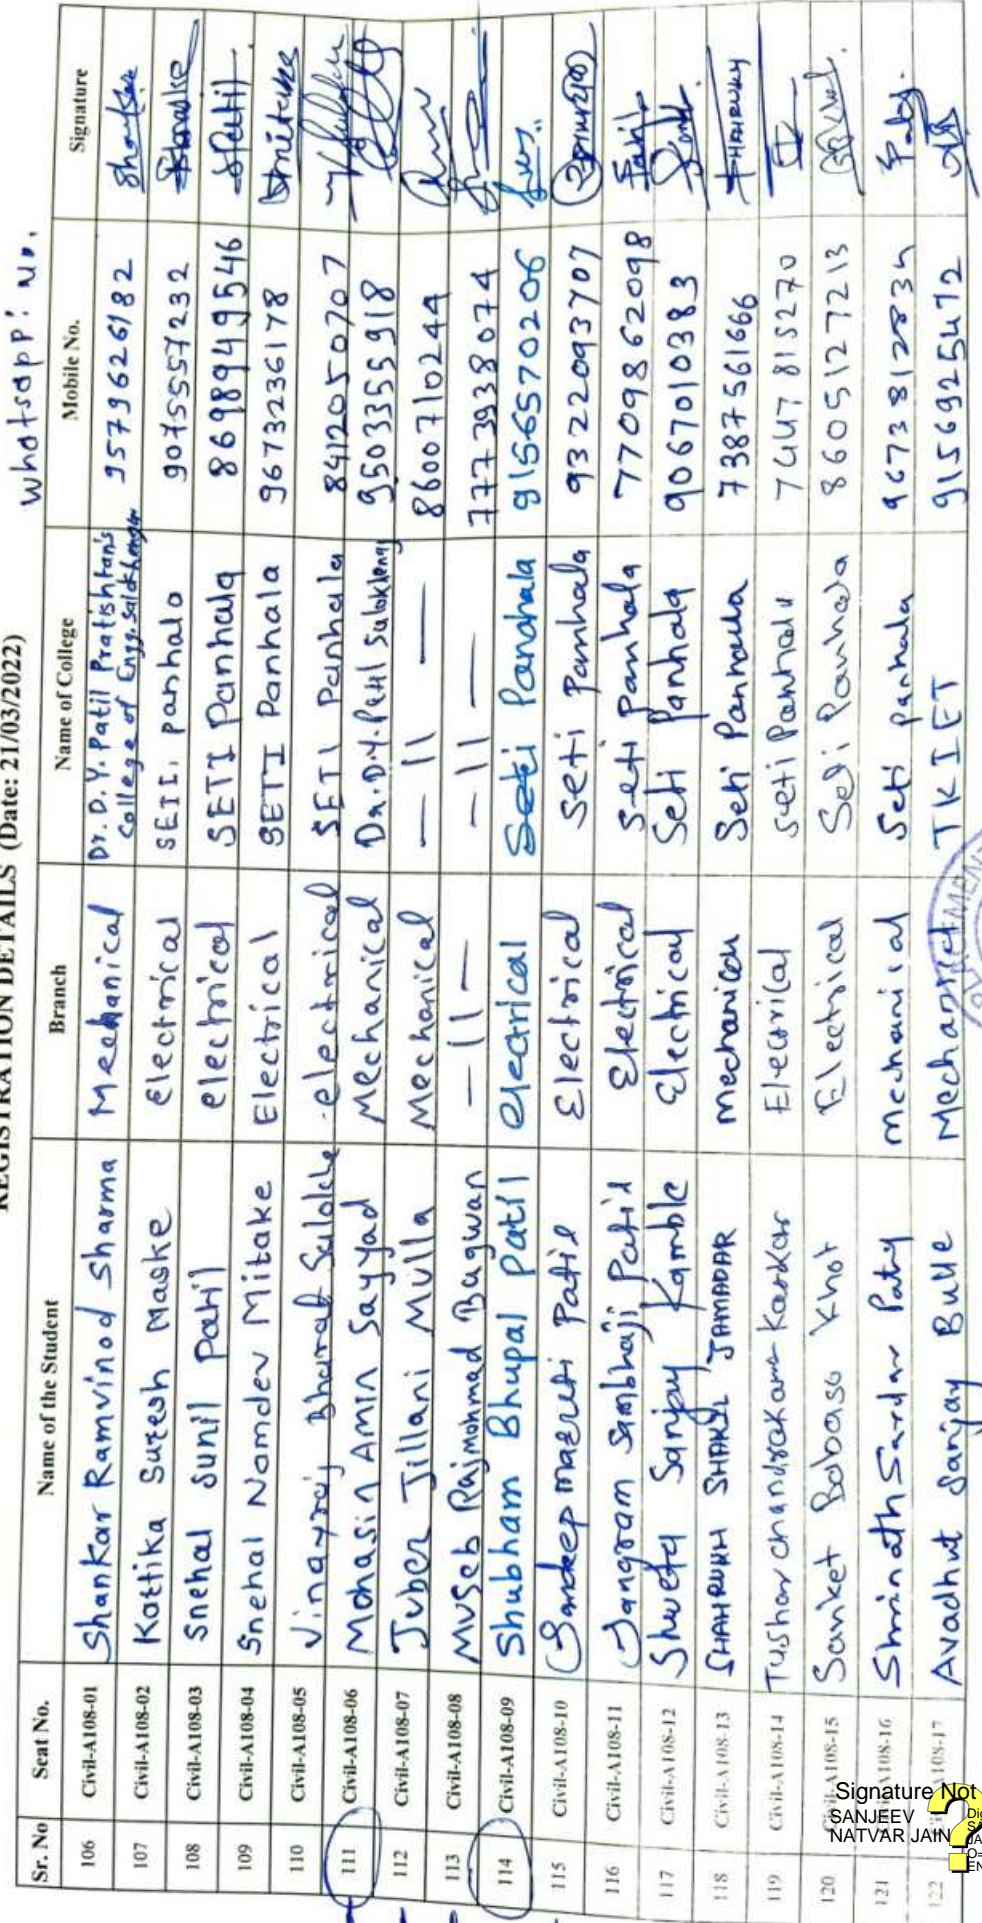 REGISTRATION DETAILS (Date: 21/03/2022)
Whatsapp: No.
Sr. No Seat No. Name of the Student Branch Name of College Mobile No. Signature
106 Civil-A108-01 Shankar Ramvinod Sharma Mechanical Dr. D. Y. Patil Pratishtan's College of Engg. Salokhenagar 9579626182
107 Civil-A108-02 Kattika Suresh Maske Electrical SEII, panhalo 9075557232
108 Civil-A108-03 Snehal Sunil Patil electrical SETI Panhala 8698949546 SPatil
109 Civil-A108-04 Snehal Namdev Mitake Electrical SETI Panhala 9673236178
110 Civil-A108-05 Vinayraj Bharat Salokhe electrical SETI Panhala 8412050707
111 Civil-A108-06 Mohasin Amin Sayyad Mechanical Dr. D.Y. Patil 9503355918
112 Civil-A108-07 Juber Jillani Mulla Mechanical — 11 — 8600710244
113 Civil-A108-08 Museb Rajmohmad Bagwan — 11 — — 11 — 7773938074
114 Civil-A108-09 Shubham Bhupal Patil electrical Seti Panahala 9156570206
115 Civil-A108-10 Sandeep maruti Patil Electrical Seti Panhala 9322093707
116 Civil-A108-11 Sangram Sambhaji Patil Electrical Seti Panhala 7709862098 Patil
117 Civil-A108-12 Shweta Sanjay Kamble Electrical Seti Panhala 9067010383
118 Civil-A108-13 SHAHRUKH SHAKIL JAMADAR mechanical Seti Panhala 7387561666
119 Civil-A108-14 Tushar chandrakant Kaskar Electrical Seti Panhala 7447815270
120 Civil-A108-15 Sanket Babaso Khot Electrical Seti Panhala 8605127213
121 Civil-A108-16 Shrinath Sardar Paty mechanical Seti panhala 9673812834 Paty.
122 A108-17 Avadhut Sanjay Bulle Mechanical TKIET 9156925472
Signature Not
SANJEEV
NATVAR JAIN